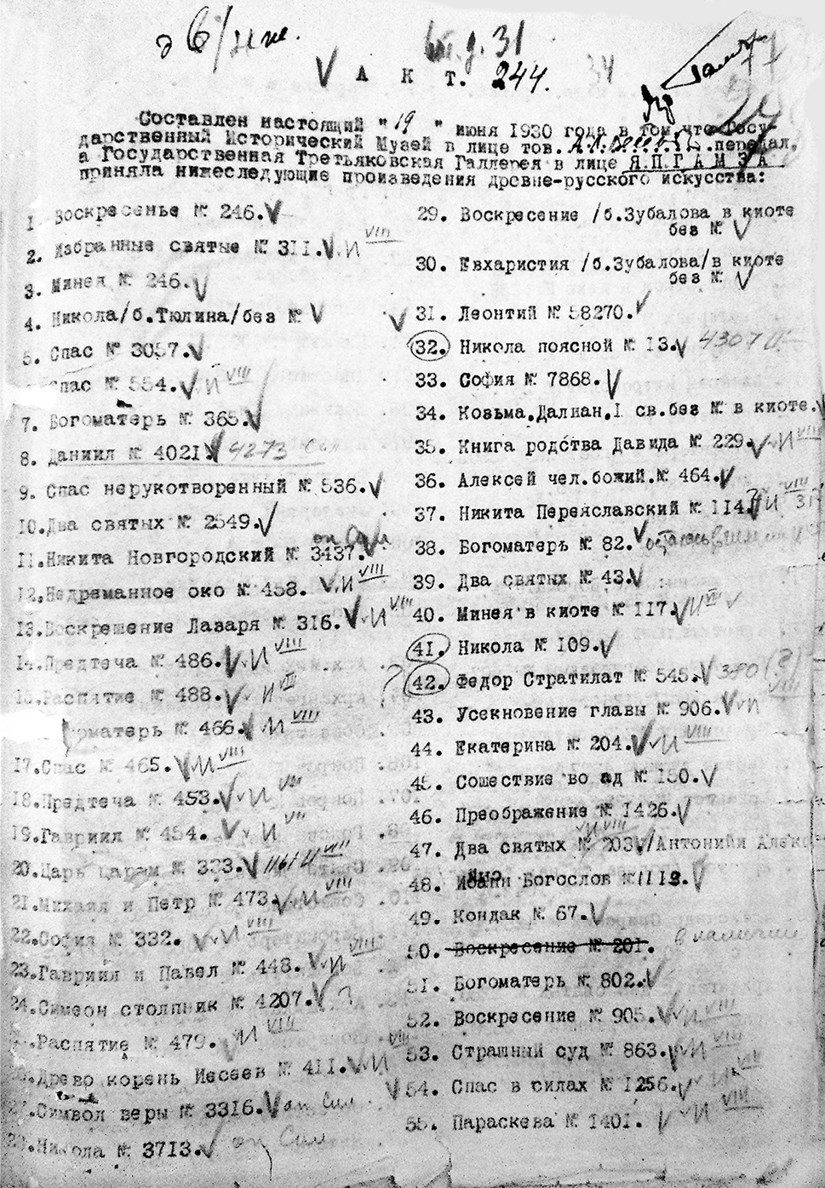 А К Т. 244.
34
Составлен настоящий "19" июня 1930 года в том, что Госу
дарственный Исторический Музей в лице тов. передал,
а Государственная Третьяковская Галлерея в лице Я.П.ГАМЗА
приняла нижеследующие произведения древне-русского искусства:
1. Воскресенье № 246. V
2. Избранные святые № 311. V. И VIII
3. Минея № 246. V
4. Никола/б.Тюлина/без № V
5. Спас № 3057. V
Спас № 554. V И VIII
7. Богоматерь № 365. V
8. Даниил № 4021 V 4273
9. Спас нерукотворенный № 536. V
10. Два святых № 2549. V
11. Никита Новгородский № 3437. V
12. Недреманное око № 458. V. И VIII
13. Воскрешение Лазаря № 316. V V И VIII
14. Предтеча № 486. V V И VIII
15. Распятие № 488. V V И VIII
оматерь № 466. V И VIII
17. Спас № 465. V V И VIII
18. Предтеча № 453. V V И VIII
19. Гавриил № 454. V V И VIII
20. Царь царем № 333. V 1161 И VIII
21. Михаил и Петр № 473. V V И VIII
22. София № 332. V V И VIII
23. Гавриил и Павел № 448. V V И VIII
24. Симеон столпник № 4207. V ?
Распятие № 479. V И VIII
26. Древо корень Иесеев № 411. V V И VIII
27. Символ веры № 3316. V оп Сим
28. Никола № 3713. V оп Сим
29. Воскресение /б.Зубалова в киоте
без № V
30. Евхаристия /б.Зубалова/в киоте
без № V
31. Леонтий № 58270. V
V 32. Никола поясной № 13. V 4307
33. София № 7868. V
34. Козьма.Далиан.1 св.без № в киоте. V
35. Книга родства Давида № 229. V V И VIII
36. Алексей чел.божий.№ 464. V
37. Никита Переяславский № 114. ? И VIII 31
38. Богоматерь № 82. V
39. Два святых № 43. V
40. Минея в киоте № 117. V И VIII V
41. Никола № 109. V
? 42. Федор Стратилат № 545. V 380 (?)
43. Усекновение главы № 906. V V И VIII
44. Екатерина № 204. V V И VIII
45. Сошествие во ад № 150. V
46. Преображение № 1426. V
47. Два святых № 203. V/Антонийи Алекс
V И VIII
48. Иоанн Богослов № 1113. V
49. Кондак № 67. V
50. Воскресение № 201. в наличии
51. Богоматерь № 802. V
52. Воскресение № 905. V V И VIII
53. Страшный суд № 863. V V И VIII
V 54. Спас в силах № 1256. V V И VIII
55. Параскева № 1401. V V И VIII